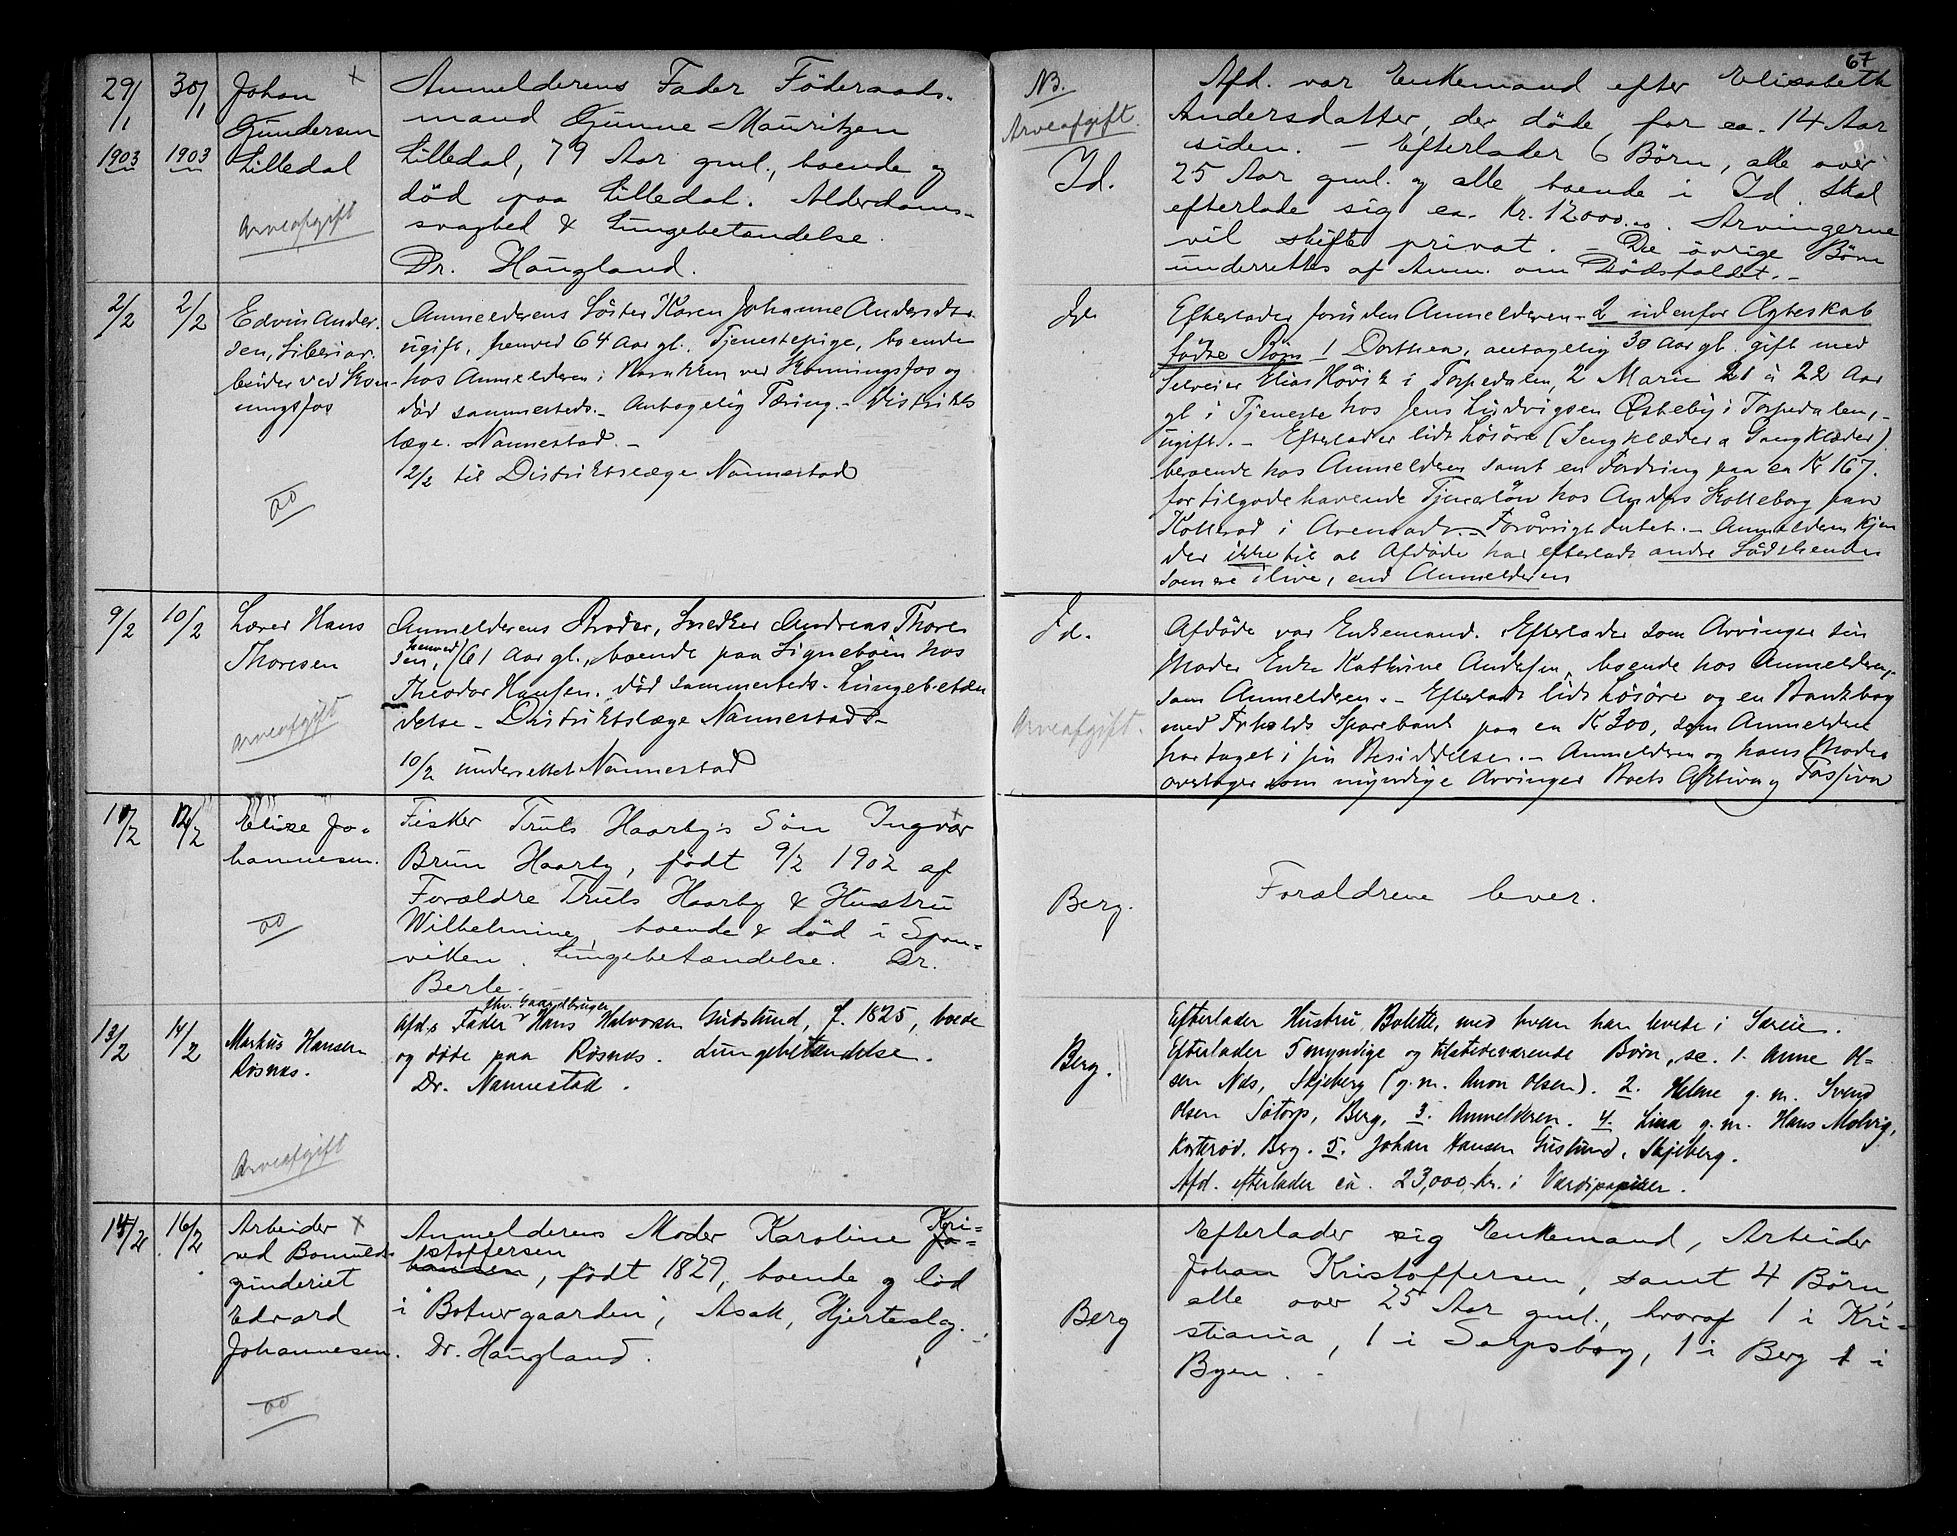 67
29/1 1903
30/1 1903
Johan
Gundersen
Lilledal
Arveafgift
Anmelderens Fader Föderaads-
mand Gunne Mauritzen
Lilledal, 79 Aar gml., boende og
död paa Lilledal. Alderdoms-
svaghed & Lungebetændelse.
Dr. Haugland.
NB.
Arveafgift.
Id.
Afd. var Enkemand efter Elisabeth
Andersdatter, der döde for ca. 14 Aar
siden. - Efterlader 6 Börn, alle over
25 Aar gml. og alle boende i Id. Skal
efterlade sig ca. Kr. 12000.00. Arvingerne
vil skifte privat. - De övrige Börn
underrettes af Anm. om Dödsfaldet. -
2/2
2/2
Edvin Ander-
sen,
besider ved Skon-
ningsfos
Anmelderens Söster Karen Johanne Andersdtr.
ugift, henved 64 Aar gl. Tjenestepige, boende
hos Anmelderen i ved Skonningsfos og
död sammesteds. - Antagelig Tæring. - Distrikts
læge Nannestad. -
2/2 til Distriktslæge Nannestad
Id.
Efterlader foruden Anmelderen - 2 udenfor Ægteskab
födte Börn 1 Dorthea, antagelig 30 Aar gl. gift med
Selveier Elias Hövik i Torpedalen, 2 Marie 21 à 22 Aar
gl i Tjeneste hos Jens Ludvigsen Østeby i Torpedalen, -
ugift. - Efterlader lidt Lösöre (Sengklæder & Gangklæder)
beroende hos Anmelderen samt en Fordring paa ca Kr 167.
for tilgodehavende Tjenerlön hos Anders paa
i Aremark. - Forövrigt Intet. - Anmelderen kjen
der ikke til at Afdöde har efterladt andre Södskende
som er ilive, end Anmelderen
9/2
10/2
Lærer Hans
Thoresen
Arveafgift
Anmelderens Broder, Snedker Andreas Thore
sen, henved 61 Aar gl., boende paa Signeböen hos
Theodor Hansen. död sammesteds - Lungebetæn
delse - Distriktslæge Nannestad -
10/2 underrettet Nannestad
Id.
Arveafgift.
Afdöde var Enkemand. Efterlader som Arvinger sin
Moder Enke Kathrine Andersen, boende hos Anmelderen,
samt Anmelderen. - Efterladt lidt Lösöre og en Bankbog
med Fr.halds Sparebank paa ca Kr 300, som Anmelderen
har taget i sin Besiddelse. - Anmelderen og hans Moder
overtager som myndige Arvinger Boets Aktiva og Passiva
11/2
12/2
Elise Jo-
hannesen.
Fisker Truls Haarby's Sön Ingvar
Brun Haarby, født 9/2 1902 af
Forældre Truls Haarby & Hustru
Wilhelmine, boende & död i Spon-
viken. Lungebetændelse. Dr.
Berle. -
Berg.
Forældrene lever.
13/2
14/2
Markus Hansen
Rösnæs.
Arveafgift
Afd.s Fader fhv. Gaardbruger Hans Halvorsen Guslund, f. 1825, boede
og döde paa Rösnæs. Lungebetændelse.
Dr. Nannestad.
Berg.
Efterlader Hustru, Bolette, med hvem han levede i Særeie.
Efterlader 5 myndige og tilstedeværende Börn, sc. 1. Anne Ol-
sen Næs, Skjeberg (g.m. Anon Olsen). 2. Helene g.m. Svend
Olsen Søtorp, Berg, 3. Anmelderen. 4. Lina g.m. Hans Molvig,
Korterød, Berg. 5. Johan Hansen Guslund, Skjeberg.
Afd. efterlader ca. 23,000 Kr. i Værdipapirer.
14/2
16/2
Arbeider
ved Bomulds
spinderiet
Edvard
Johannesen.
Anmelderens Moder Karoline Kri-
stoffersen, født 1829, boende og död
i "Boturgaarden", Asak, Hjerteslag. -
Dr. Haugland.
Berg
Efterlader sig Enkemand, Arbeider
Johan Kristoffersen, samt 4 Börn,
alle over 25 Aar gml., hvoraf 1 i Kri-
stiania, 1 i Sarpsborg, 1 i Berg 1 i
Byen. -